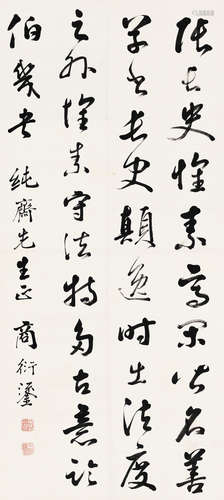 張長史懷素高閑皆名善
草書長史顛逸時出法度
之外懷素守法特多古意臨
伯幾書 純齋先生正 商衍鎏